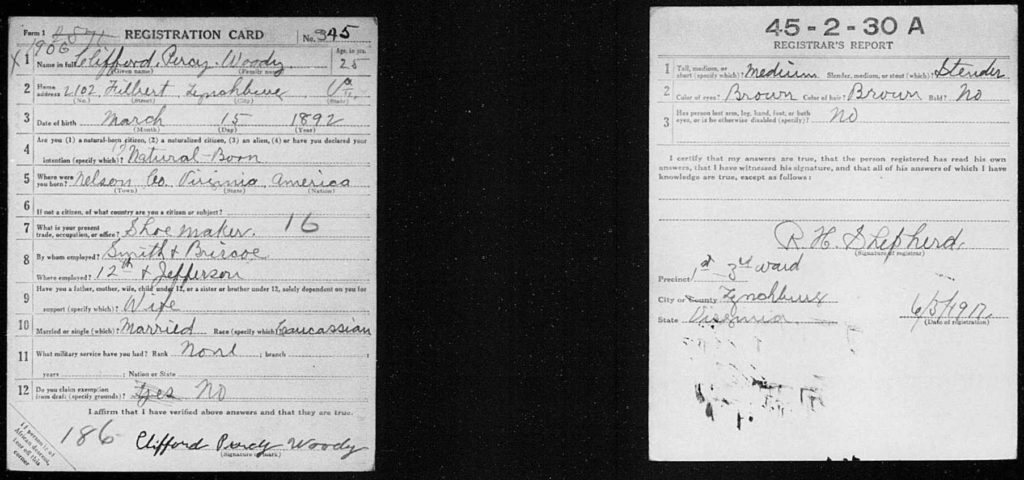 Form 1 2571 REGISTRATION CARD No. 345
X 906
1 Name in full Clifford Percy Woody Age, in yrs. 25
(Given name) (Family name)
2 Home address 2102 Filbert Lynchburg Va
(No.) (Street) (City) (State)
3 Date of birth March 15 1892
(Month) (Day) (Year)
4 Are you (1) a natural-born citizen, (2) a naturalized citizen, (3) an alien, (4) or have you declared your
intention (specify which)? Natural-Born
5 Where were you born? Nelson Co. Virginia America
(Town) (State) (Nation)
6 If not a citizen, of what country are you a citizen or subject?
7 What is your present trade, occupation, or office? Shoe maker. 16
8 By whom employed? Smith & Briscoe
Where employed? 12th & Jefferson
9 Have you a father, mother, wife, child under 12, or a sister or brother under 12, solely dependent on you for
support (specify which)? Wife
10 Married or single (which)? Married Race (specify which)? Caucassian
11 What military service have you had? Rank None ; branch ;
years ; Nation or State
12 Do you claim exemption from draft (specify grounds)? Yes No
I affirm that I have verified above answers and that they are true.
186 Clifford Percy Woody
(Signature or mark)
If person is of
African descent,
tear off this
corner
45-2-30 A
REGISTRAR'S REPORT
1 Tall, medium, or short (specify which)? Medium Slender, medium, or stout (which)? Slender
2 Color of eyes? Brown Color of hair? Brown Bald? No
3 Has person lost arm, leg, hand, foot, or both
eyes, or is he otherwise disabled (specify)? No
I certify that my answers are true, that the person registered has read his own
answers, that I have witnessed his signature, and that all of his answers of which I have
knowledge are true, except as follows:
R. H. Shepherd
(Signature of registrar)
Precinct 1st 3rd ward
City or County Lynchburg
State Virginia
6/5/1917
(Date of registration)